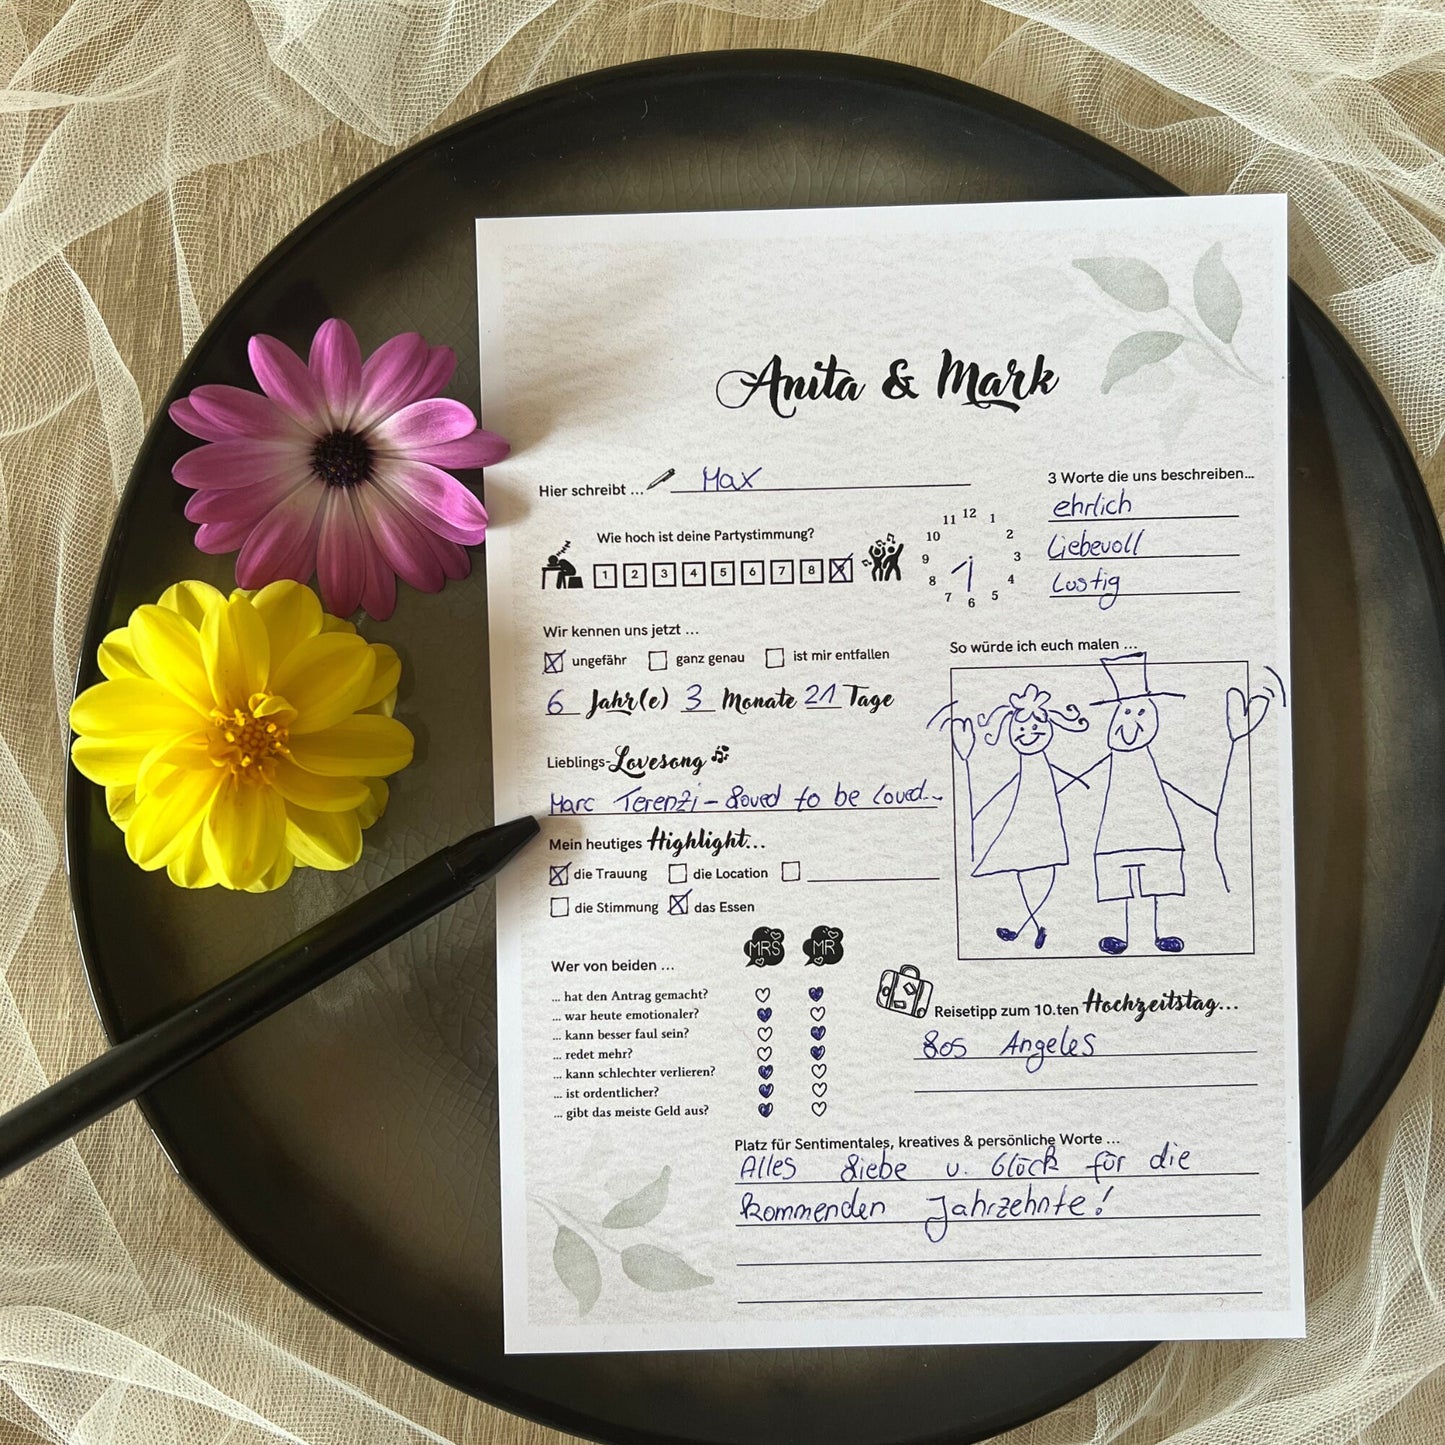 Anita & Mark
Hier schreibt ... Max
Wie hoch ist deine Partystimmung?
1 2 3 4 5 6 7 8 9
12 1 2 3 4 5 6 7 8 9 10 11
3 Worte die uns beschreiben...
ehrlich
Liebevoll
Lustig
Wir kennen uns jetzt ...
ungefähr ganz genau ist mir entfallen
6 Jahr(e) 3 Monate 21 Tage
Lieblings-Lovesong
Marc Terenzi - Loved to be loved...
Mein heutiges Highlight...
die Trauung die Location
die Stimmung das Essen
So würde ich euch malen ...
MRS MR
Wer von beiden ...
... hat den Antrag gemacht?
... war heute emotionaler?
... kann besser faul sein?
... redet mehr?
... kann schlechter verlieren?
... ist ordentlicher?
... gibt das meiste Geld aus?
Reisetipp zum 10.ten Hochzeitstag...
Los Angeles
Platz für Sentimentales, kreatives & persönliche Worte ...
Alles Liebe u. Glück für die
kommenden Jahrzehnte!